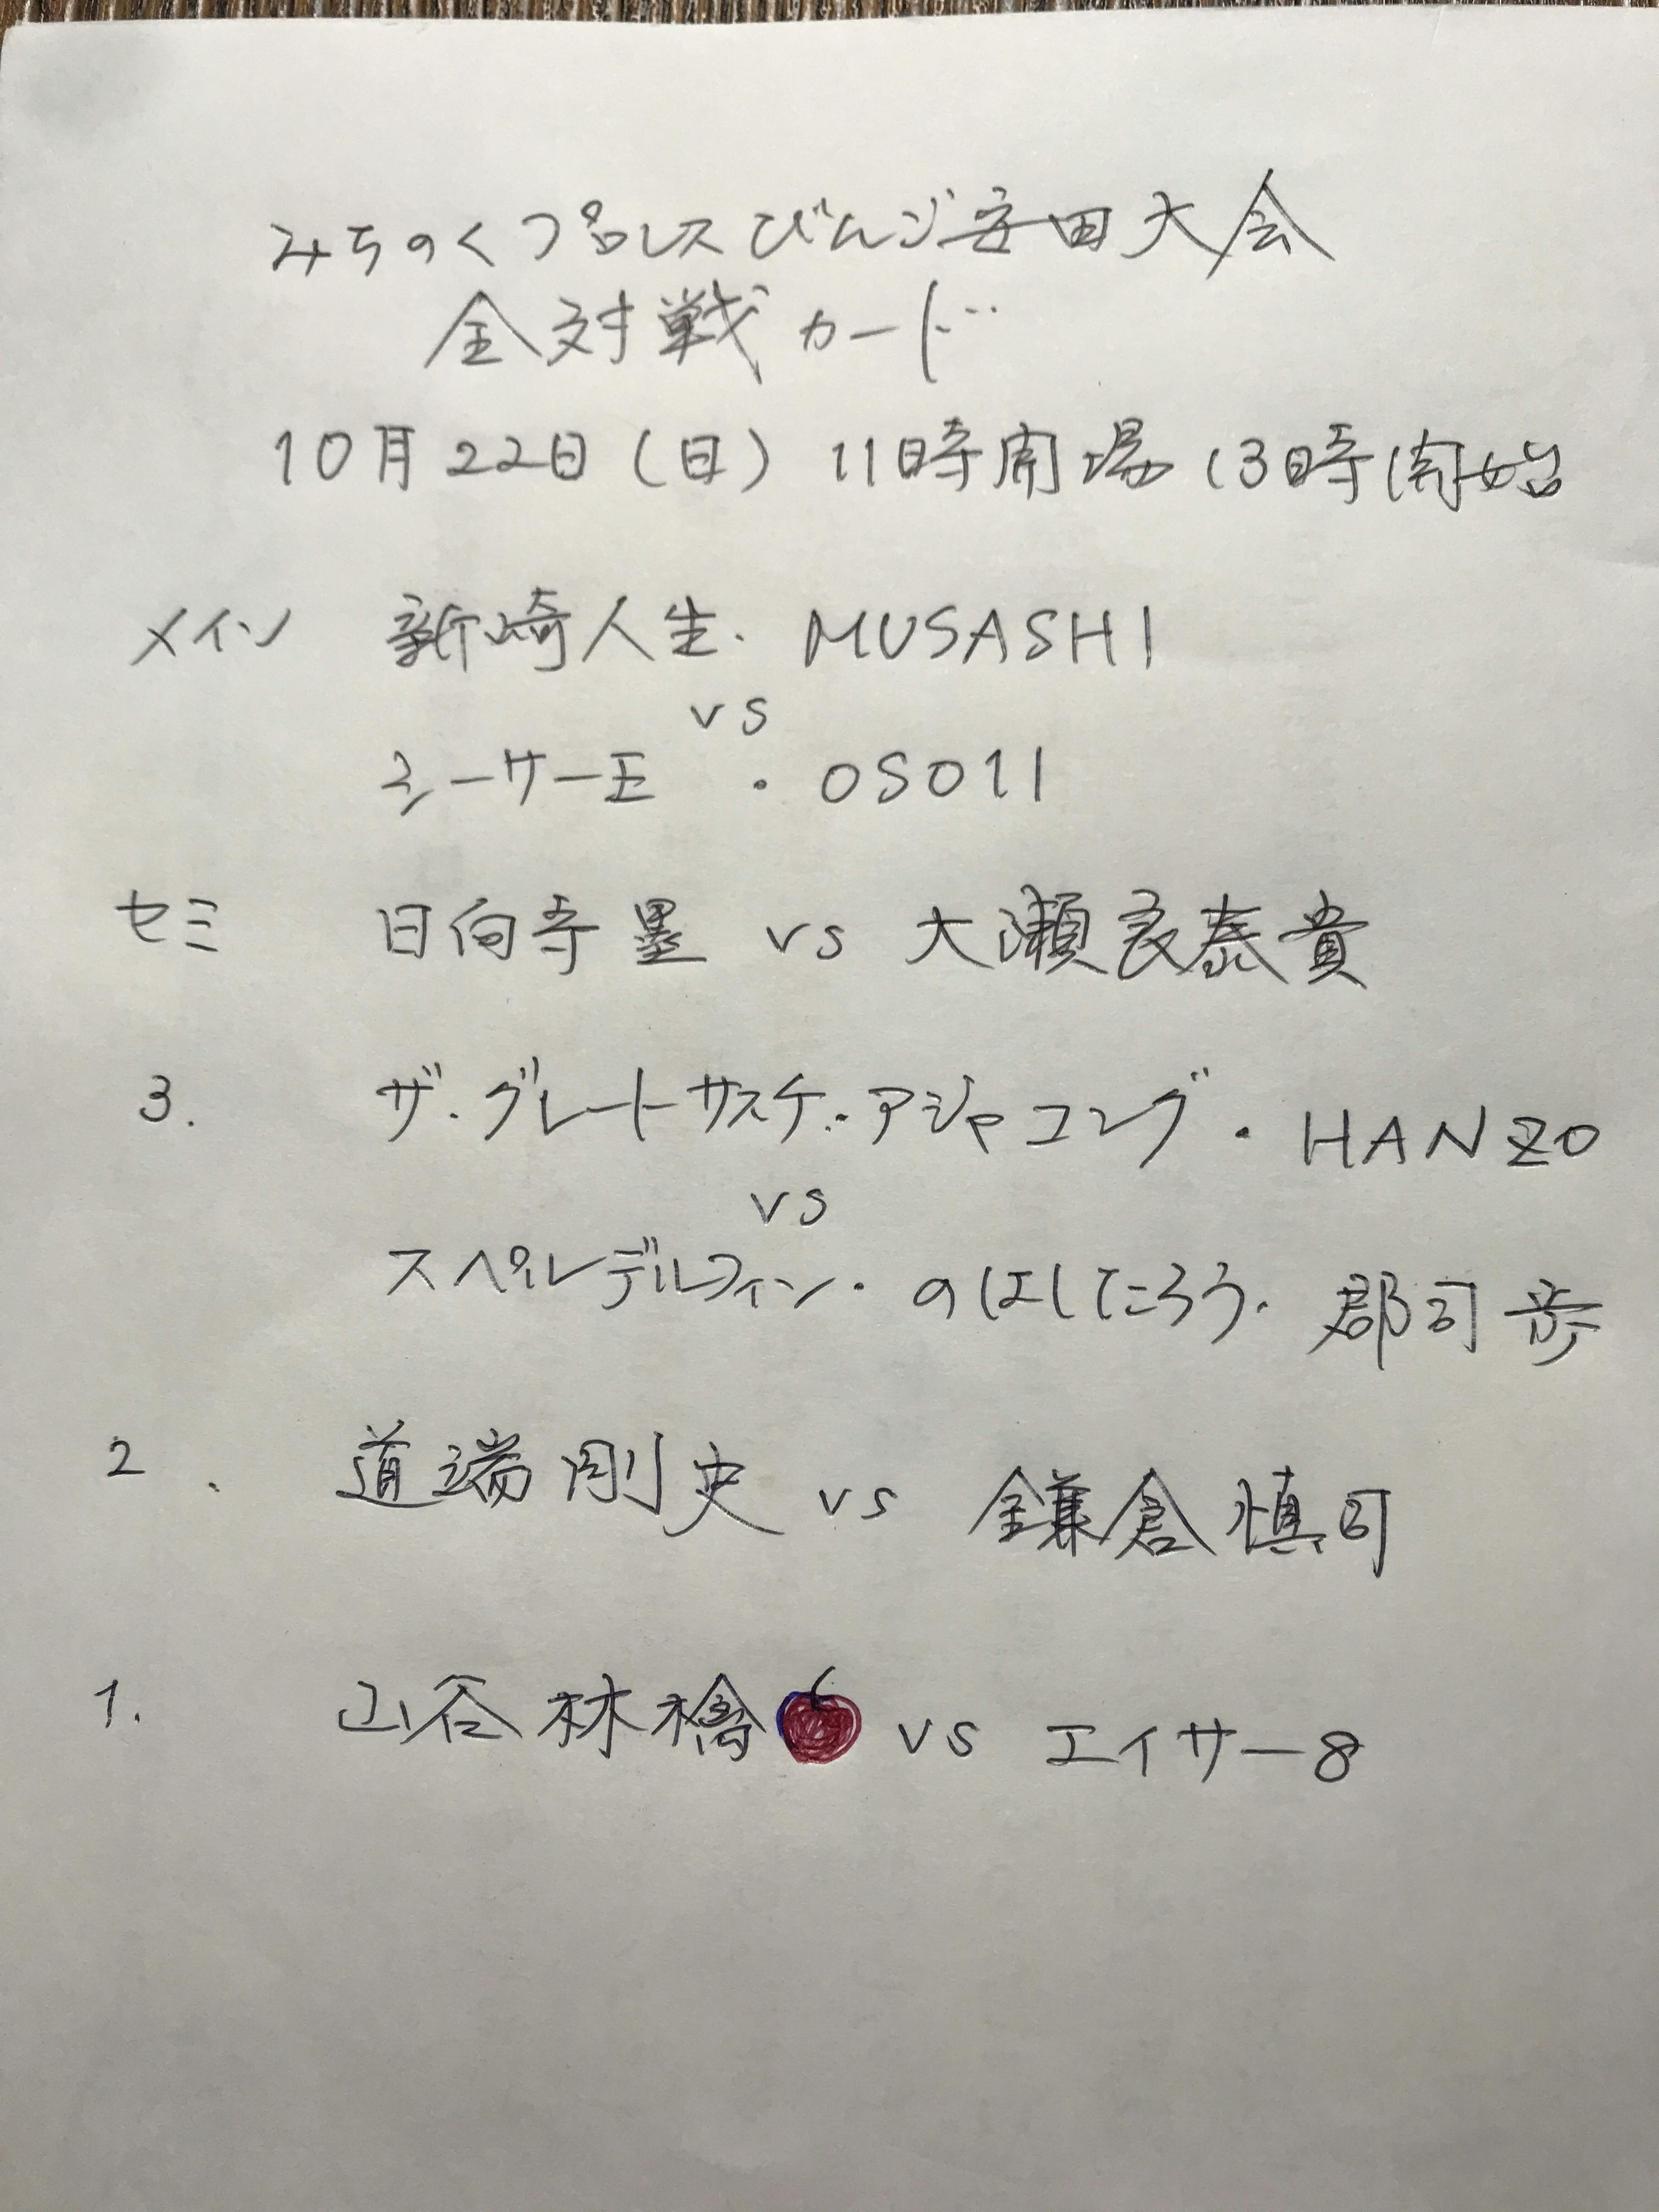 みちのくプロレスびんご安田大会
全対戦カード
10月22日(日) 11時開場 13時開始
メイン 新崎人生・MUSASHI
vs
シーサー王・OSO11
セミ 日向寺塁 vs 大瀬良泰貴
3. ザ・グレートサスケ・アジャコング・HANZO
vs
スペルデルフィン・のはしたろう・郡司歩
2. 道端剛史 vs 鎌倉慎司
1. 山谷林檎 vs エイサー8